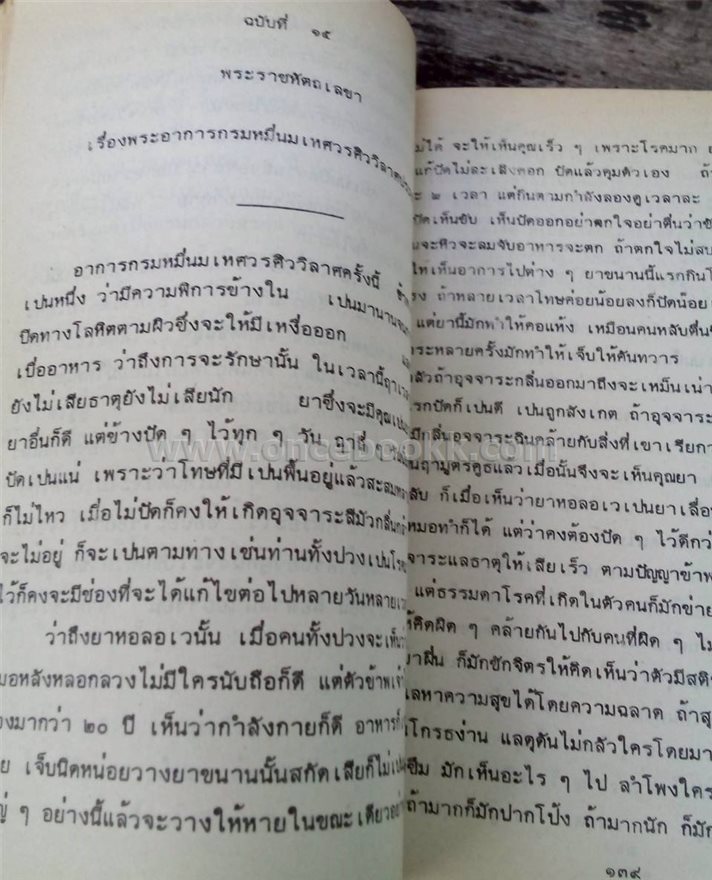 ฉบับที่ ๑๕
พระราชหัตถเลขา
เรื่องพระอาการกรมหมื่นมเหศวรศิววิลาศ
อาการกรมหมื่นมเหศวรศิววิลาศครั้งนี้
เปนหนึ่ง ว่ามีความพิการข้างใน เปนมานาน
ปิดทางโลหิตตามผิวซึ่งจะให้มีเหงื่อออก
เบื่ออาหาร ว่าถึงการจะรักษานั้น ในเวลานี้
ยังไม่เสียธาตุยังไม่เสียนัก ยาซึ่งจะมีคุณ
ยาอื่นก็ดี แต่ข้างปัด ๆ ไว้ทุก ๆ วัน
ปัดเปนแน่ เพราะว่าโทษที่มีเปนพื้นอยู่แล้วสะสม
ก็ไม่ไหว เมื่อไม่ปัดก็คงให้เกิดอุจจาระสีมัวกลิ่น
จะไม่อยู่ ก็จะเปนตามทางเช่นท่านทั้งปวงเปนโรค
ไว้ก็คงจะมีช่องที่จะได้แก้ไขต่อไปหลายวันหลาย
ว่าถึงยาหอลอเวนั้น เมื่อคนทั้งปวงจะเห็น
มอหลังหลอกลวงไม่มีใครนับถือก็ดี แต่ตัวข้าพเจ้า
องมากว่า ๒๐ ปี เห็นว่ากำลังกายก็ดี อาหาร
ย เจ็บนิดหน่อยวางยาขนานนั้นสกัดเสียก็ไม่
ญ่ ๆ อย่างนี้แล้วจะวางให้หายในขณะเดียว
ไม่ได้ จะให้เห็นคุณเร็ว ๆ เพราะโรคมาก
แก้ปัดไม่ละเสิงดอก ปัดแล้วคุมตัวเอง
๒ เวลา แต่กินตามกำลังลองดูเวลาละ
ปัดเห็นขับ เห็นปัดออกอย่าตกใจอย่าตื่นว่า
จะหิวจะลมจับอาหารจะตก ถ้าตกใจไม่
ให้เห็นอาการไปต่าง ๆ ยาขนานนี้แรกกิน
ถ้าหลายเวลาโทษค่อยน้อยลงก็ปัดน้อย
แต่ยานี้มักทำให้คอแห้ง เหมือนคนหลับตื่น
ระหลายครั้งมักทำให้เจ็บให้คันทวาร
ถ้าอุจจาระกลิ่นออกมาถึงจะเหม็นเน่า
รกปัดก็เปนดี เปนถูกสังเกต ถ้าอุจจาระ
มีกลิ่นอุจจาระฉินคล้ายกับสิ่งที่เขาเรียก
ฤามูตรคูธแลวเมื่อนั้นจึงจะเห็นคุณยา
ลับ ก็เมื่อเห็นว่ายาหอลอเวเปนยา
หมอทำก็ได้ แต่ว่าคงต้องปัด ๆ ไว้ดีกว่า
จาระแลธาตุให้เสียเร็ว ตามปัญญา
แต่ธรรมดาโรคที่เกิดในตัวคนก็มัก
ห้คิดผิด ๆ คล้ายกันไปกับคนที่ผิด ๆ
ก็มักชักจิตรให้คิดเห็นว่าตัวมีสติ
แลหาความสุขได้โดยความฉลาด ถ้า
โกรธง่าน แลดุดันไม่กลัวใครโดยมาก
ซึม มักเห็นอะไร ๆ ไป ลำโพงใคร
ถ้ามากก็มักปากโป้ง ถ้ามากนัก ก็มัก
๑๓๙
www.oncebookk.com